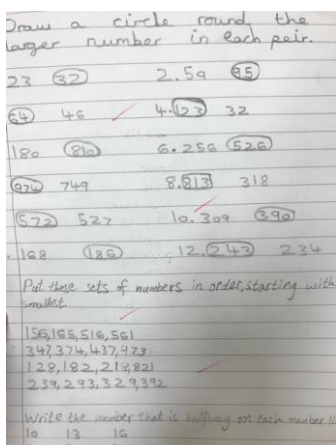 Draw a circle round the
larger number in each pair.
23 32 2. 59 95
64 46 4. 123 32
180 810 6. 256 526
974 749 8. 813 318
572 527 10. 309 390
168 186 12. 243 234
Put these sets of numbers in order, starting with
smallest.
156, 165, 516, 561
347, 374, 437, 473
128, 182, 218, 821
239, 293, 329, 392
Write the number that is halfway on each number
10 13 16